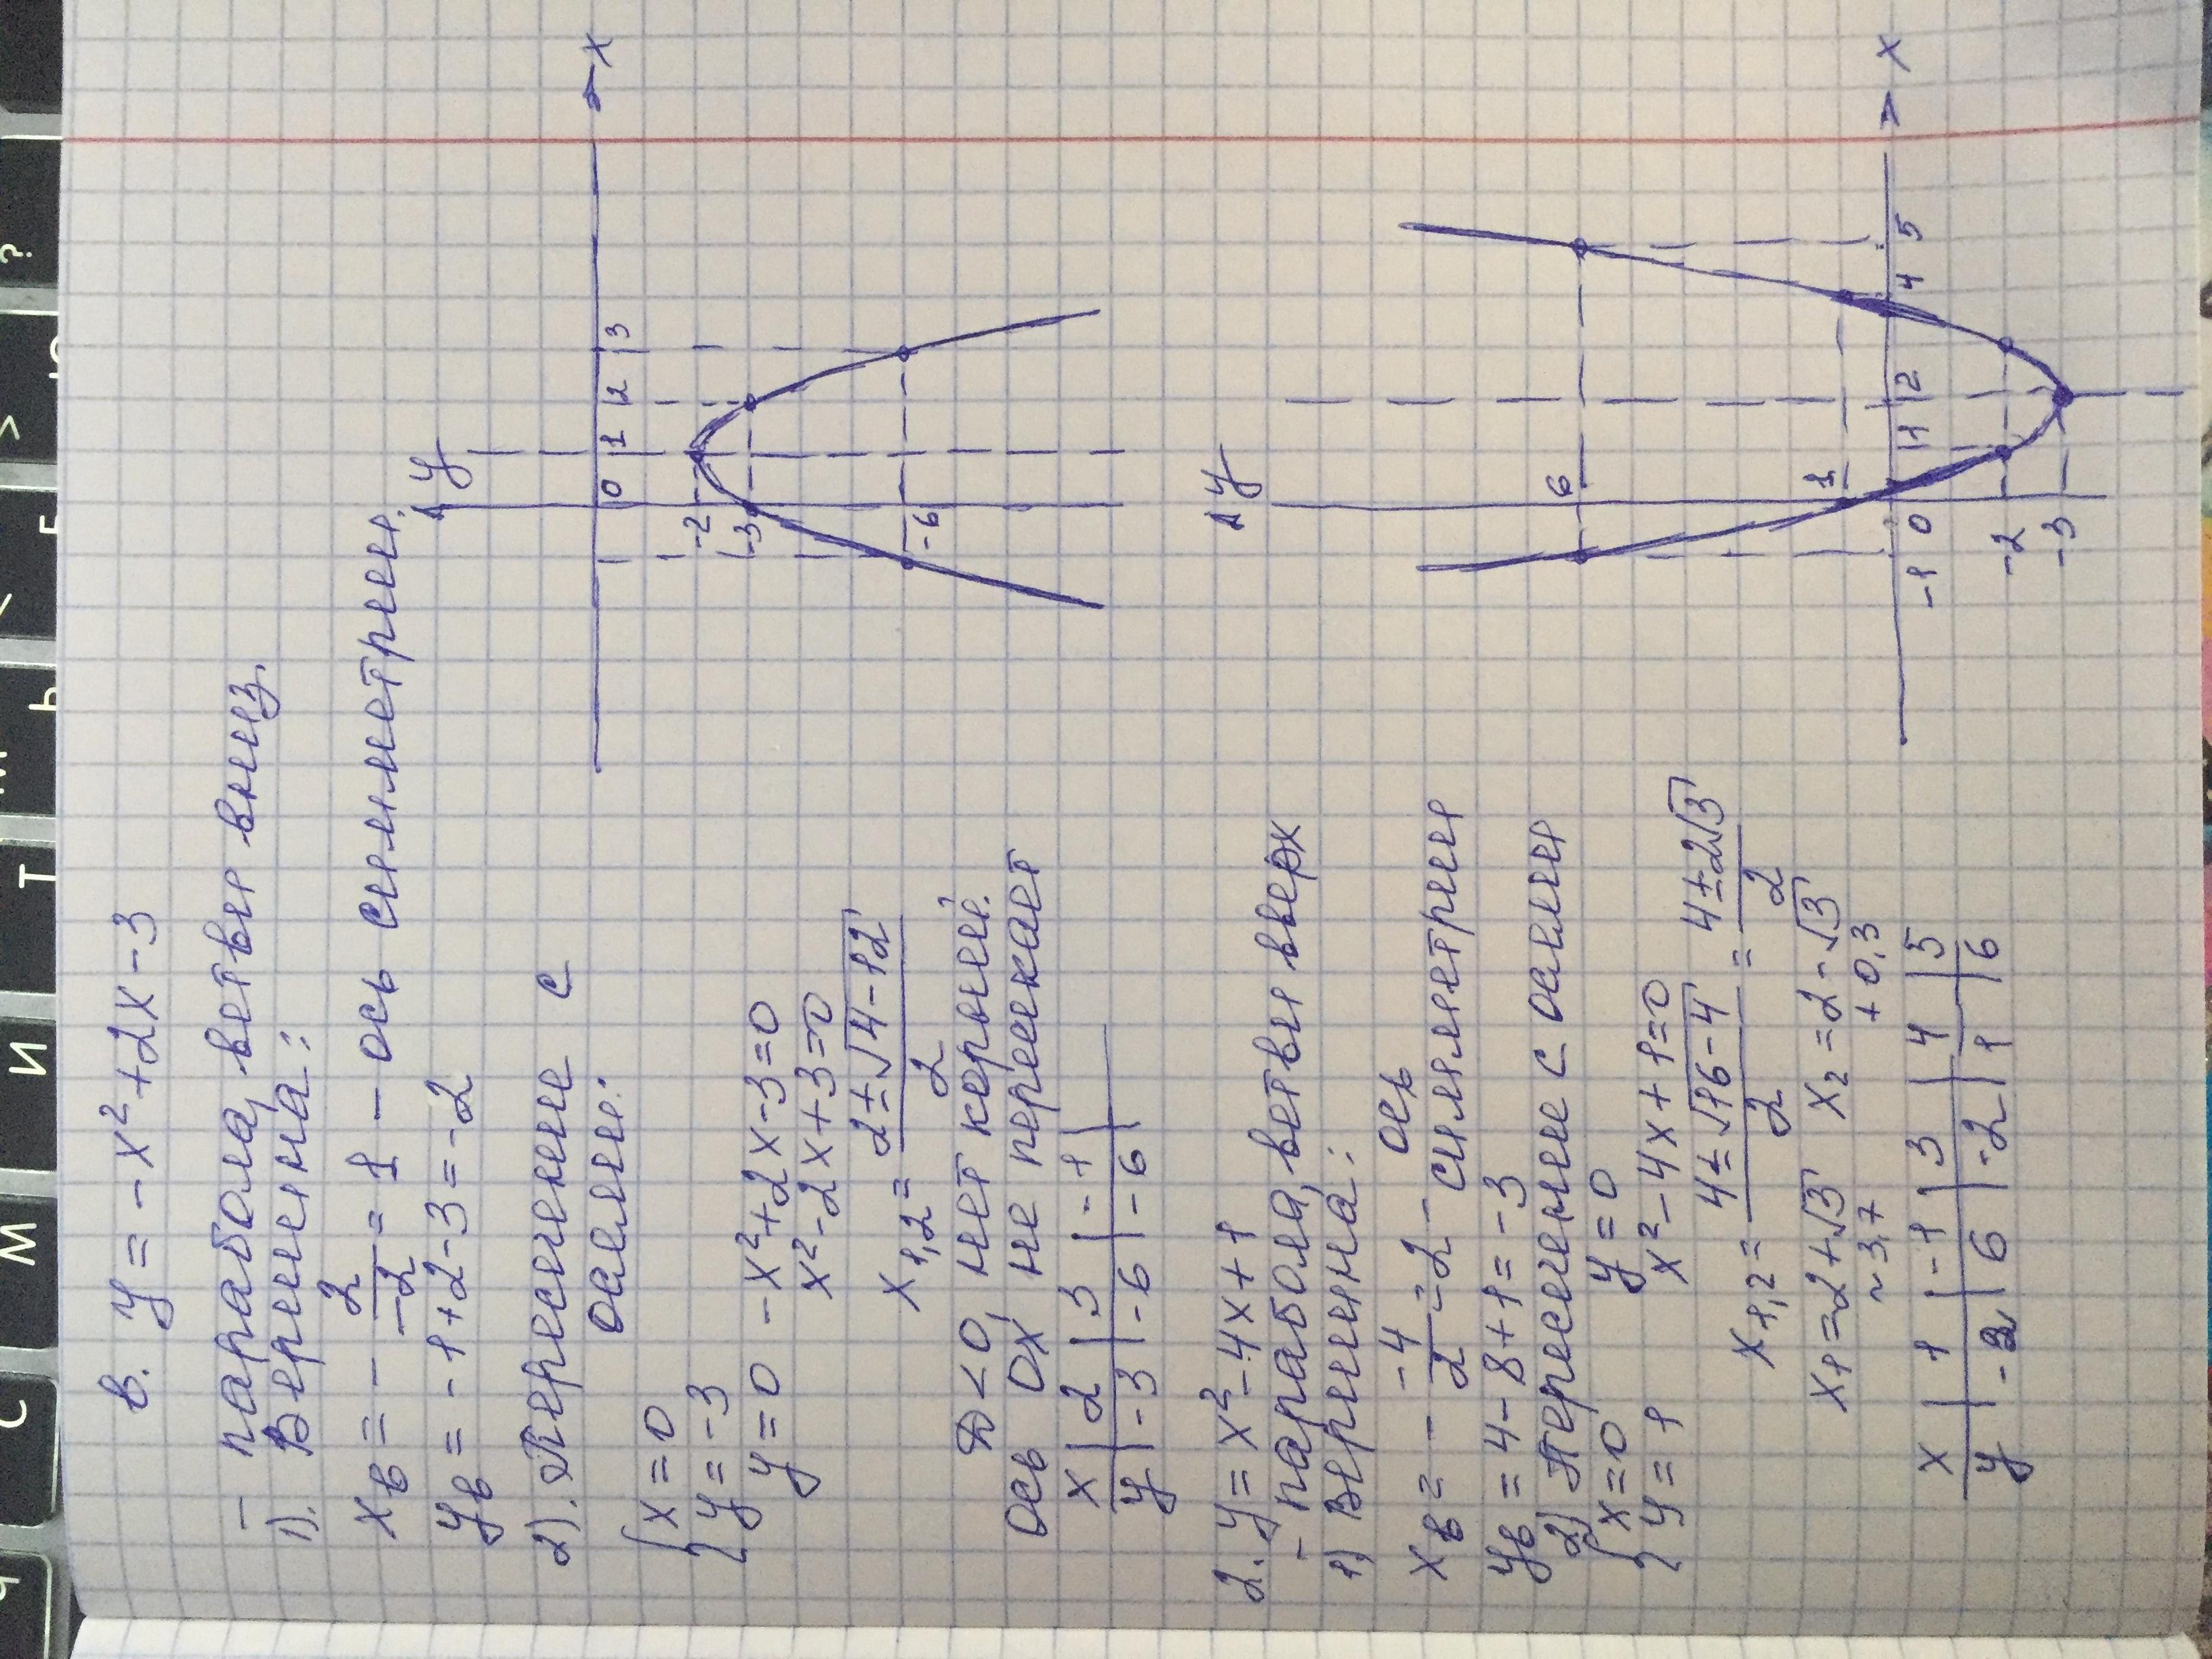 в. y = -x² + 2x - 3
- парабола, ветви вниз.
1). Вершина:
xв = - 2/-2 = 1 - ось симметрии.
yв = -1 + 2 - 3 = -2
2). Пересечение с
осями:
{ x = 0
y = -3
y = 0 -x² + 2x - 3 = 0
x² - 2x + 3 = 0
x1,2 = (2 ± √4-12)/2
D < 0, нет корней.
Ось OX не пересекает
x | 2 | 3 | -1 |
y | -3 | -6 | -6 |
y
x
0 1 2 3
-2
-3
-6
2. y = x² - 4x + 1
- парабола, ветви вверх
1) Вершина:
xв = - -4/2 = 2 - ось симметрии
yв = 4 - 8 + 1 = -3
2) Пересечение с осями
{ x = 0
y = 1
y = 0
x² - 4x + 1 = 0
x1,2 = (4 ± √16-4)/2 = (4 ± 2√3)/2
x1 = 2 + √3 x2 = 2 - √3
~ 3,7 + 0,3
x | 1 | -1 | 3 | 4 | 5
y | -2 | 6 | -2 | 1 | 6
y
6
1
x
-1 0 1 2 4 5
-2
-3
? > < Ь Т И М С Ч